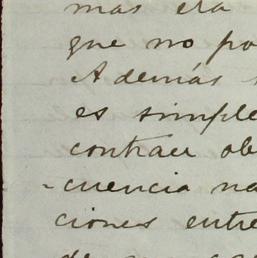 mas era
que no po
Además
es simple
contraer ob
-cuencia na
ciones entre
de